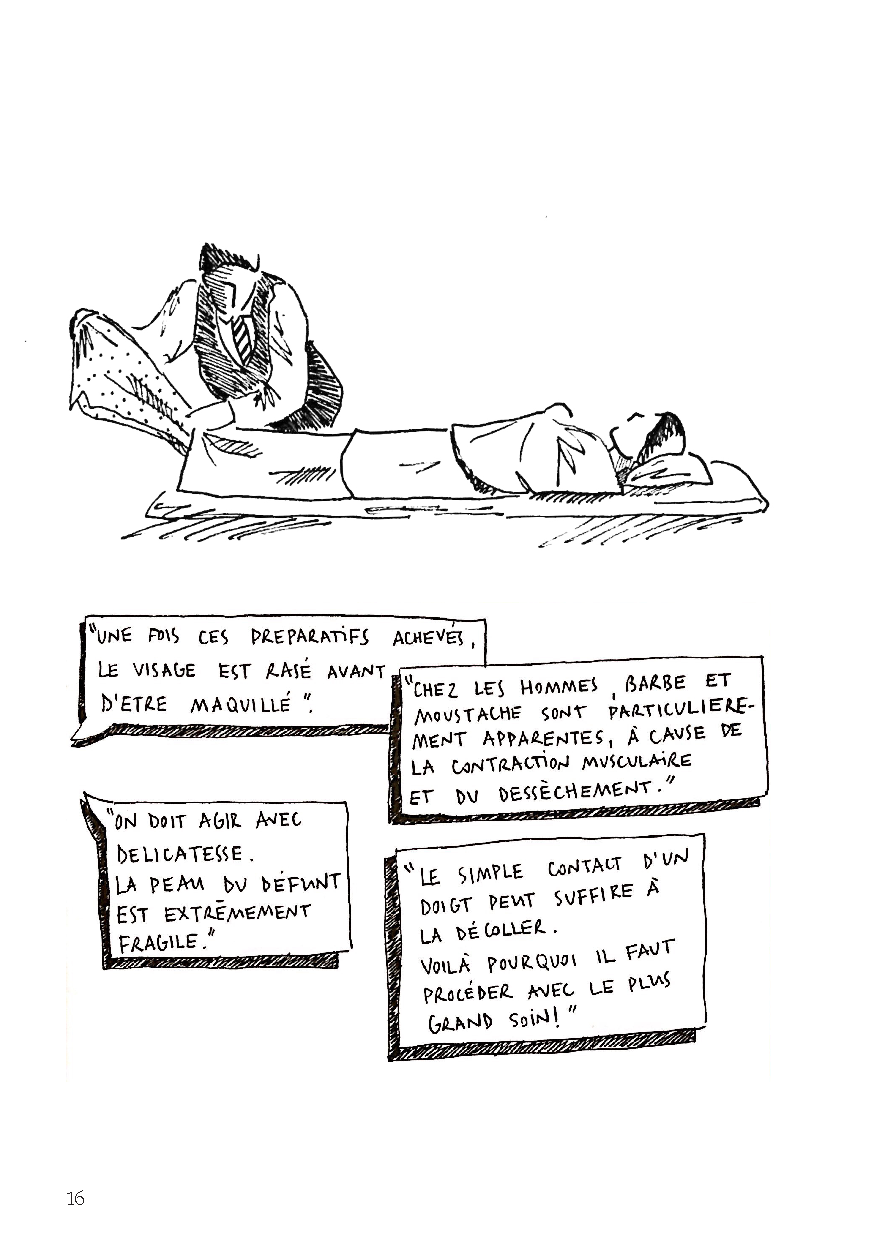 "UNE FOIS CES PREPARATIFS ACHEVÉS,
LE VISAGE EST RASÉ AVANT
D'ETRE MAQUILLÉ".
"CHEZ LES HOMMES, BARBE ET
MOUSTACHE SONT PARTICULIERE-
MENT APPARENTES, À CAUSE DE
LA CONTRACTION MUSCULAIRE
ET DU DESSÈCHEMENT."
"ON DOIT AGIR AVEC
DELICATESSE.
LA PEAU DU DÉFUNT
EST EXTRÊMEMENT
FRAGILE."
"LE SIMPLE CONTACT D'UN
DOIGT PEUT SUFFIRE À
LA DÉCOLLER.
VOILÀ POURQUOI IL FAUT
PROCÉDER AVEC LE PLUS
GRAND SOIN!"
16